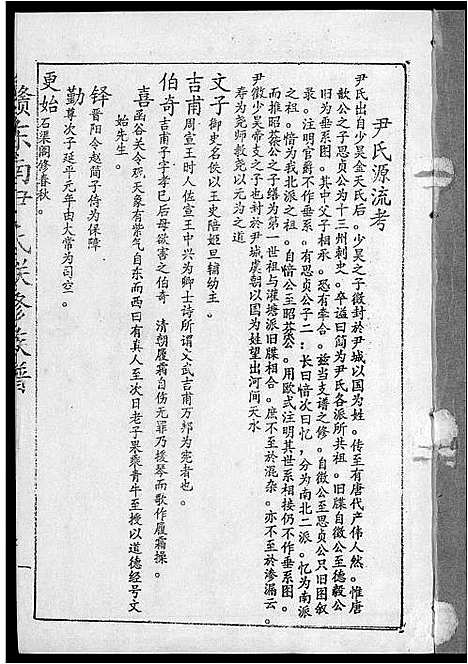 尹氏源流考
尹氏出自少昊金天氏后。少昊之子微封於尹城以国为姓。传至有唐代产伟人然。惟唐
歆公之子思贞公为十三州刺史。卒谥曰简为尹氏各派所共祖。旧牒自微公至德毅公
旧为垂系图。其中父子相承。恐有牵合。兹当支谱之修。自微公至思贞公只旧图叙
录。注明官爵不作垂系。有思贞公子二：长曰愔次曰忆，分为南北二派。忆为南派
之祖。愔为我北派之祖。自愔公至昭棻公。用欧式注明其世系相接仍不作垂系图。
而推昭棻公之子缮为第一世祖与灌塘派旧牒相合。庶不至於混杂。亦不至於渗漏云。
尹徵少昊帝支之子也封於尹城虞朝以国为姓望出河间天水
寿为尧师教尧以无为之道
文子 御史名佚以王史陪姬旦辅幼主。
吉甫 周宣王时人佐宣王中兴为卿士诗所谓文武吉甫万邦为宪者也。
伯奇 吉甫子字孝已后母欲害之伯奇 清朝履霜自伤无罪乃援琴而歌作履霜操。
喜 函谷关令观天象有紫气自东而西曰有真人至次日老子果乘青牛至授以道德经号文
始先生。
铎 晋阳令赵简子倚为保障
勤 尊次子延平元年由大常为司空。
更始 石渠阁修春秋。
赣东南尹氏联修族谱
一